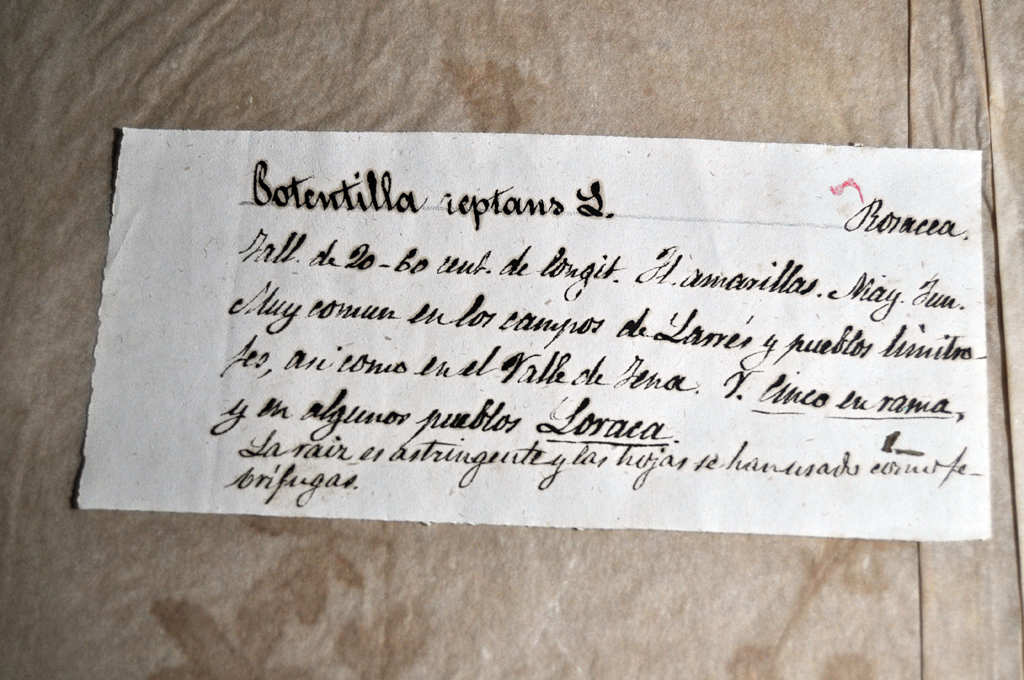 Potentilla reptans L.
Rosacea.
Tall. de 20-60 cent. de longit. Fl. amarillas. May. Jun.
Muy comun en los campos de Larrés y pueblos limitro-
fes, asi como en el Valle de Tena. V. Cinco en rama,
y en algunos pueblos Loraca.
La raiz es astringente y las hojas se han usado como fe-
brífugas.